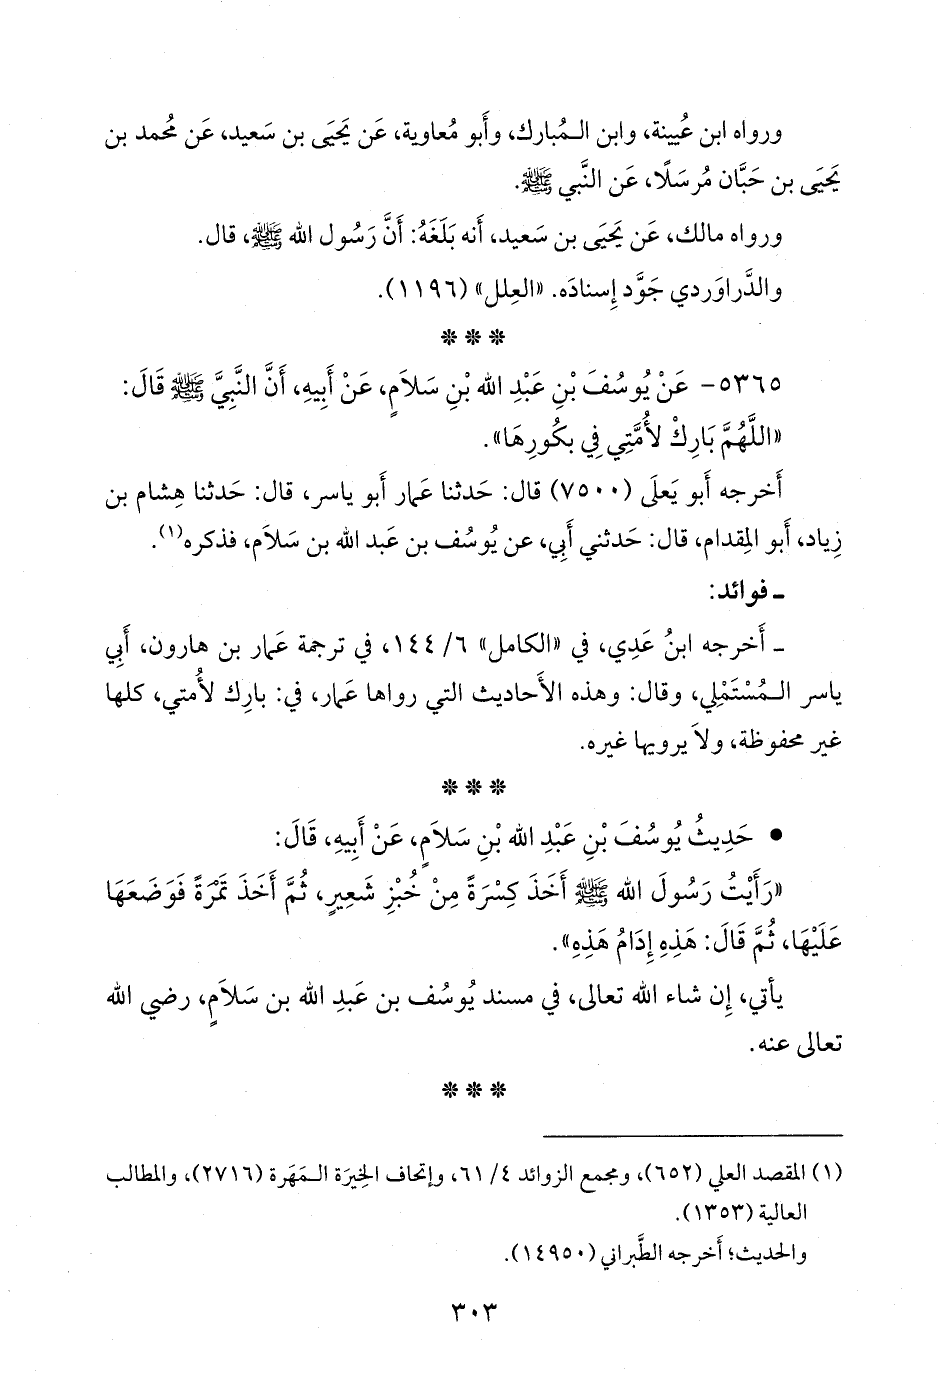 ورواه ابن عُيينة، وابن الـمُبارك، وأَبو مُعاوية، عَن يَحيَى بن سَعيد، عَن مُحمد بن
يَحيَى بن حَبَّان مُرسَلًا، عَن النَّبي ﷺ.
ورواه مالك، عَن يَحيَى بن سَعيد، أَنه بَلَغَهُ: أَنَّ رَسُول الله ﷺ، قال.
والدَّراوَردي جَوَّد إِسنادَه. «العِلل» (١١٩٦).
* * *
٥٣٦٥- عَنْ يُوسُفَ بْنِ عَبْدِ الله بْنِ سَلاَمٍ، عَنْ أَبِيهِ، أَنَّ النَّبِيَّ ﷺ قَالَ:
«اللَّهُمَّ بَارِكْ لأُمَّتِي فِي بكُورِهَا».
أَخرجه أَبو يَعلَى (٧٥٠٠) قال: حَدثنا عَمار أَبو ياسر، قال: حَدثنا هِشام بن
زِياد، أَبو المِقدام، قال: حَدثني أَبي، عن يُوسُف بن عَبد الله بن سَلاَم، فذكره(١).
ـ فوائد:
ـ أَخرجه ابنُ عَدِي، في «الكامل» ٦/ ١٤٤، في ترجمة عَمار بن هارون، أَبي
ياسر الـمُسْتَمْلِي، وقال: وهذه الأَحاديث التي رواها عَمار، في: بارِك لأُمتي، كلها
غير محفوظة، ولاَ يرويها غيره.
* * *
• حَدِيثُ يُوسُفَ بْنِ عَبْدِ الله بْنِ سَلاَمٍ، عَنْ أَبِيهِ، قَالَ:
«رَأَيْتُ رَسُولَ الله ﷺ أَخَذَ كِسْرَةً مِنْ خُبْزِ شَعِيرٍ، ثُمَّ أَخَذَ تَمْرَةً فَوَضَعَهَا
عَلَيْهَا، ثُمَّ قَالَ: هَذِهِ إِدَامُ هَذِهِ».
يأتي، إِن شاء الله تعالى، في مسند يُوسُف بن عَبدِ الله بن سَلاَمٍ، رضي الله
تعالى عنه.
* * *
(١) المقصد العلي (٦٥٢)، ومجمع الزوائد ٤/ ٦١، وإتحاف الخِيرَة الـمَهَرة (٢٧١٦)، والمطالب
العالية (١٣٥٣).
والحديث؛ أَخرجه الطَّبراني (١٤٩٥٠).
٣٠٣